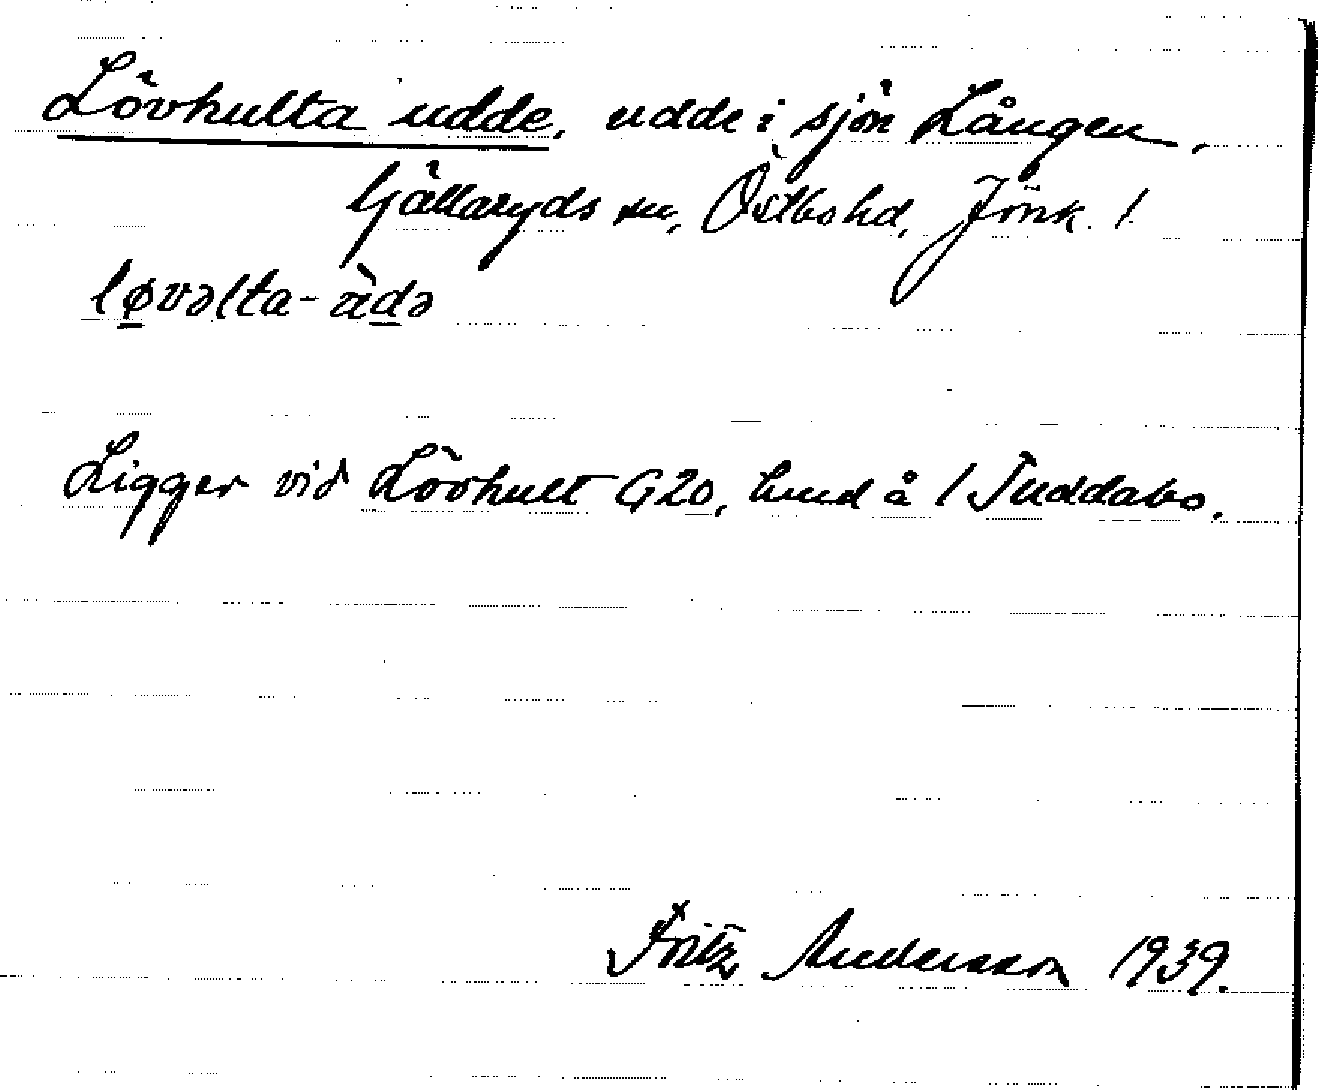 Lövhulta udde, udde i sjön Lången,
Gällaryds sn, Östbo hd, Jönk. l.
løvəlta-ùdə
Ligger vid Lövhult G20, hmd å 1 Tuddabo.
Fritz Andersson 1939.